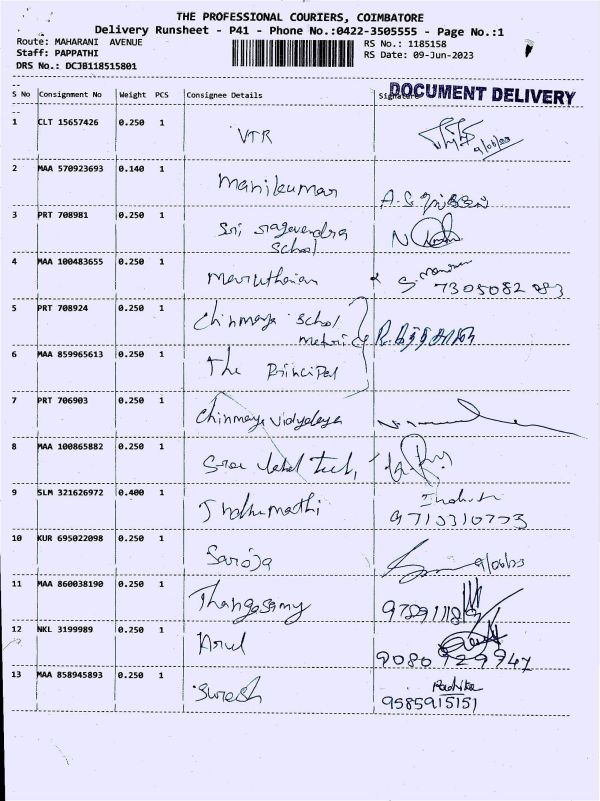 THE PROFESSIONAL COURIERS, COIMBATORE
Delivery Runsheet - P41 - Phone No.:0422-3505555 - Page No.:1
Route: MAHARANI AVENUE RS No.: 1185158
Staff: PAPPATHI RS Date: 09-Jun-2023
DRS No.: DCJB118515801
S No Consignment No Weight PCS Consignee Details Signature DOCUMENT DELIVERY
1 CLT 15657426 0.250 1 VTR 9/06/23
2 MAA 570923693 0.140 1 Manikumar A.S.
3 PRT 708981 0.250 1 Sri ragavendra
School
4 MAA 100483655 0.250 1 S.
7305082
5 PRT 708924 0.250 1 Chinmaya School
6 MAA 859965613 0.250 1 The Principal
7 PRT 706903 0.250 1 Chinmaya Vidyalaya
8 MAA 100865882 0.250 1 Sree label tech,
9 SLM 321626972 0.400 1 Indhumathi
9713310773
10 KUR 695022098 0.250 1 Saroja 9/06/23
11 MAA 860038190 0.250 1 Thangasamy
12 NKL 3199989 0.250 1 Arul
13 MAA 858945893 0.250 1 Suresh Radhika
9585915151